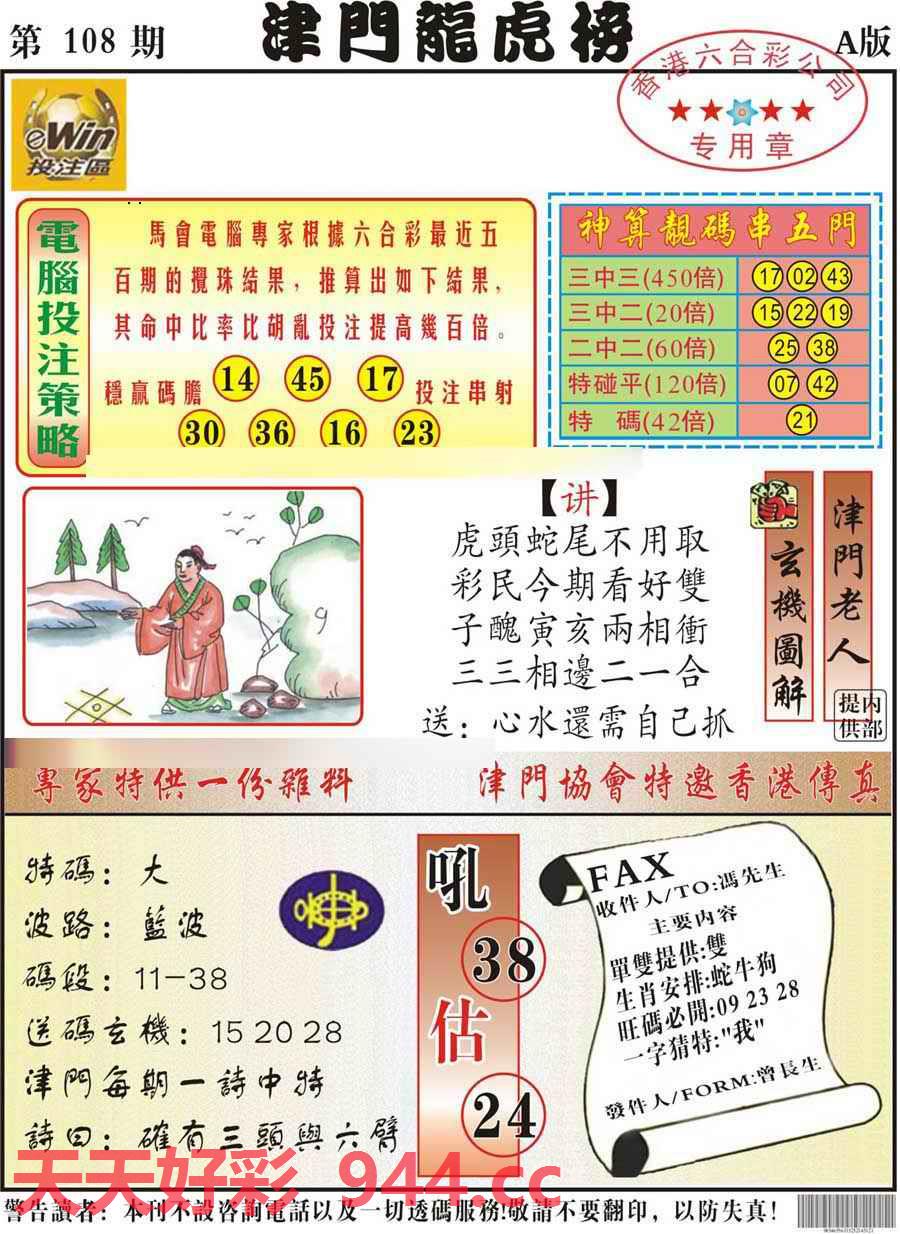 第 108 期
津門龍虎榜
A版
香港六合彩公司
专用章
eWin
投注區
電腦投注策略
馬會電腦專家根據六合彩最近五
百期的攪珠結果，推算出如下結果，
其命中比率比胡亂投注提高幾百倍。
穩贏碼膽 14 45 17 投注串射
30 36 16 23
神算靚碼串五門
三中三(450倍) 17 02 43
三中二(20倍) 15 22 19
二中二(60倍) 25 38
特碰平(120倍) 07 42
特 碼(42倍) 21
【讲】
虎頭蛇尾不用取
彩民今期看好雙
子醜寅亥兩相衝
三三相邊二一合
送：心水還需自己抓
玄機圖解
津門老人
提供
内部
專家特供一份雜料
津門協會特邀香港傳真
特碼：大
波路：藍波
碼段：11-38
送碼玄機：15 20 28
津門每期一詩中特
詩曰：確有三頭與六臂
吼
38
估
24
FAX
收件人/TO:馮先生
主要内容
單雙提供:雙
生肖安排:蛇牛狗
旺碼必開:09 23 28
一字猜特:"我"
發件人/FORM:曾長生
天天好彩 944.cc
警告讀者：本刊不設咨詢電話以及一切透碼服務!敬請不要翻印，以防失真!